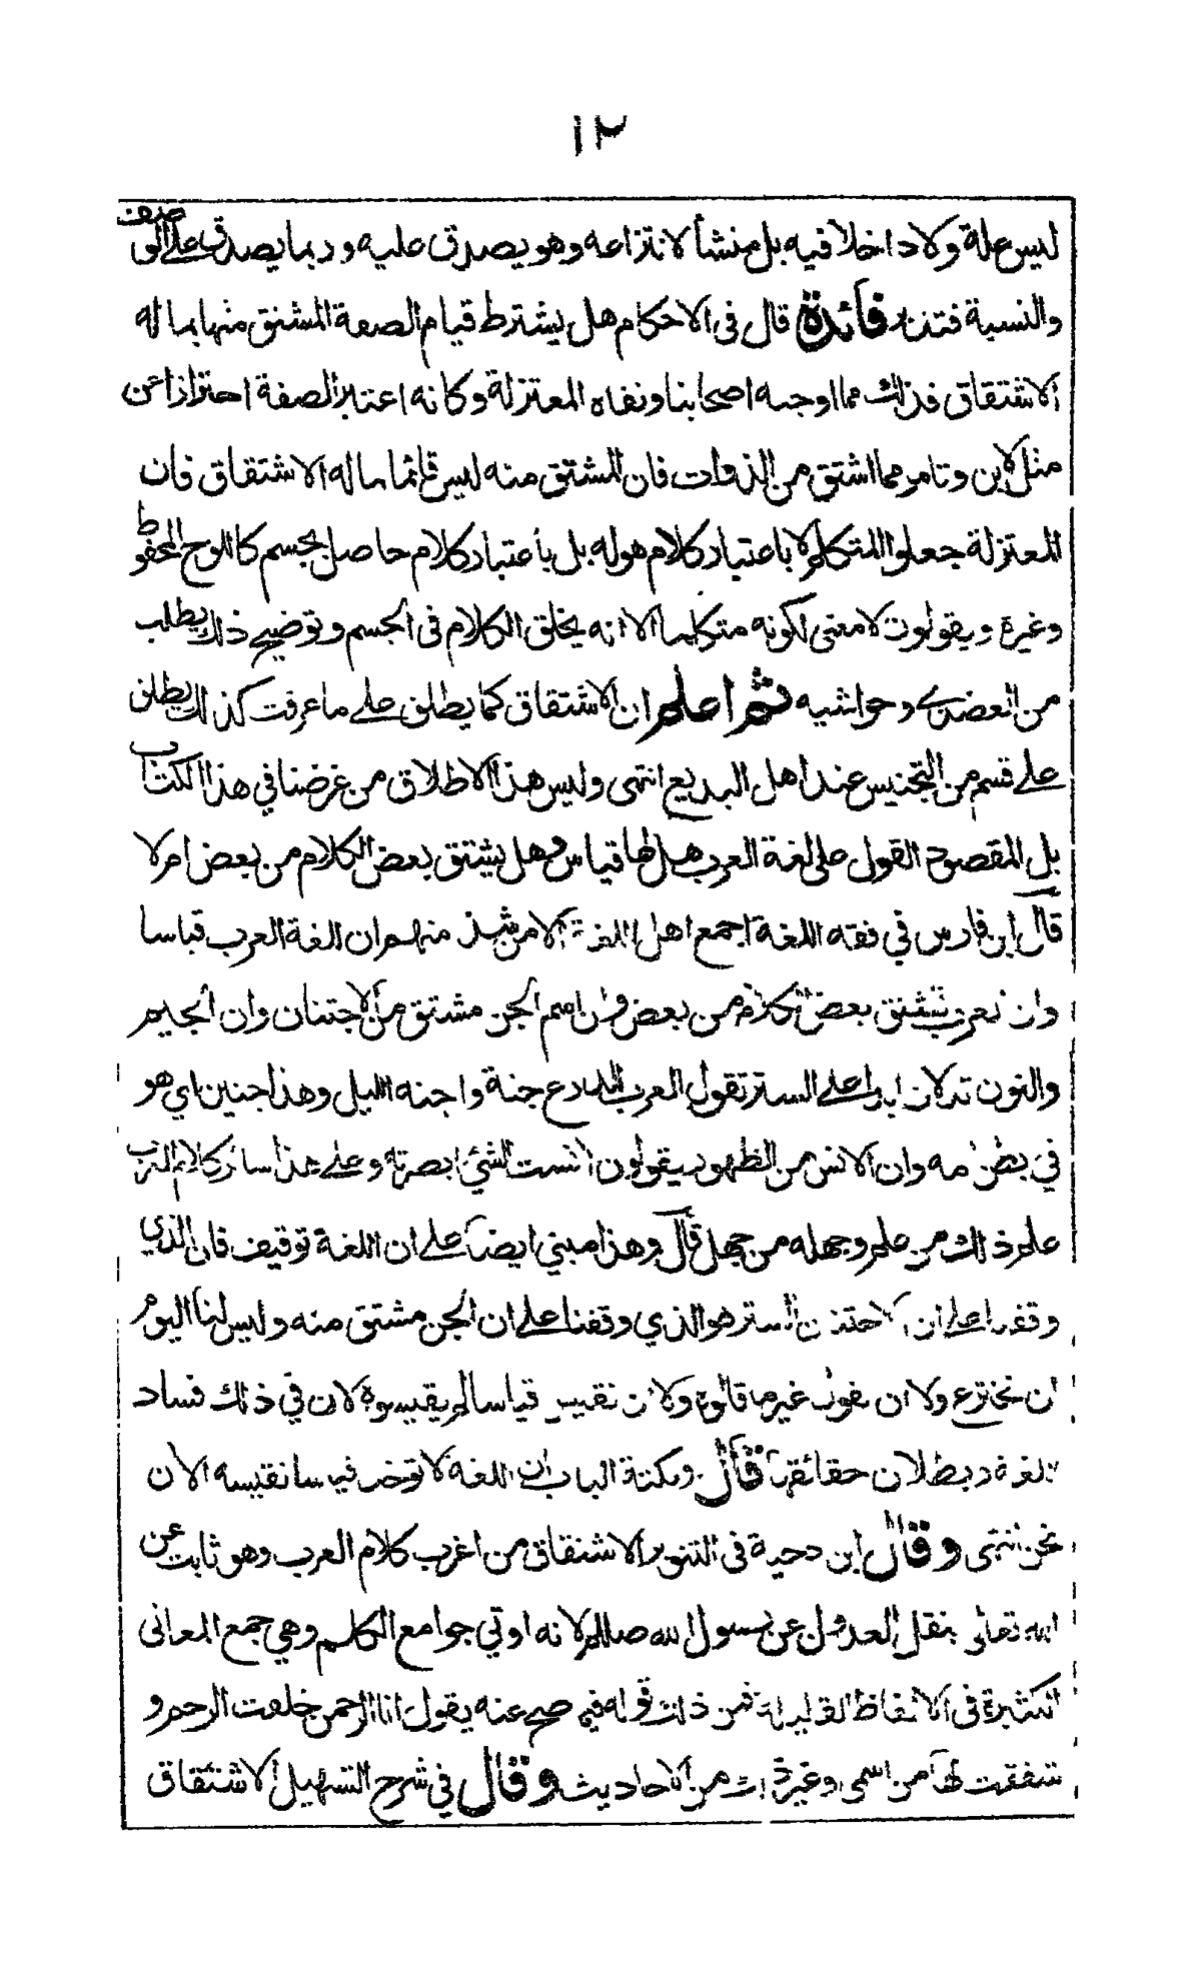 ١٢
ليس علة ولا داخلا فيه بل منشأ لانتزاعه وهو يصدق عليه وربما يصدق على الوصف
والنسبة فتدبر فائدة قال في الاحكام هل يشترط قيام الصفة المشتق منها بما له
الاشتقاق فذلك مما اوجبه اصحابنا ونفاه المعتزلة وكانه اعتبر الصفة احترازا عن
مثل لابن وتامر مما اشتق من الذوات فان المشتق منه ليس قائما بما له الاشتقاق فان
المعتزلة جعلوا المتكلم لا باعتبار كلام هو له بل باعتبار كلام حاصل بجسم كاللوح المحفوظ
وغيره ويقولون لا معنى لكونه متكلما الا انه يخلق الكلام في الجسم وتوضيح ذلك يطلب
من العضدي وحواشيه ثم اعلم ان الاشتقاق كما يطلق على ما عرفت كذلك يطلق
على قسم من التجنيس عند اهل البديع انتهى وليس هذا الاطلاق من غرضنا في هذا الكتاب
بل المقصود القول على لغة العرب هل لها قياس وهل يشتق بعض الكلام من بعض ام لا
قال ابن فارس في فقه اللغة اجمع اهل اللغة الا من شذ منهم ان للغة العرب قياسا
وان العرب تشتق بعض الكلام من بعض وان اسم الجن مشتق من الاجتنان وان الجيم
والنون تدلان ابدا على الستر تقول العرب للدرع جنة واجنه الليل وهذا جنين اي هو
في بطن امه وان الانس من الظهور يقولون انست الشيء ابصرته وعلى هذا سائر كلام العرب
علم ذلك من علم وجهله من جهل قال وهذا مبني ايضا على ان اللغة توقيف فان الذي
وقفنا على ان الاجتنان الستر هو الذي وقفنا على ان الجن مشتق منه وليس لنا اليوم
ان نخترع ولا ان نقول غير ما قالوه ولا ان نقيس قياسا لم يقيسوه لان في ذلك فساد
اللغة وبطلان حقائقها قال ونكتة الباب ان اللغة لا توخذ قياسا نقيسه الان
نحن انتهى وقال ابن دحية في التنوير الاشتقاق من اغرب كلام العرب وهو ثابت عن
الله تعالى بنقل العدول عن رسول الله صللم لانه اوتي جوامع الكلم وهي جمع المعاني
الكثيرة في الالفاظ القليلة فمن ذلك قوله فيما صح عنه يقول انا الرحمن خلقت الرحم و
شققت لها من اسمي وغير ذلك من الاحاديث وقال في شرح التسهيل الاشتقاق